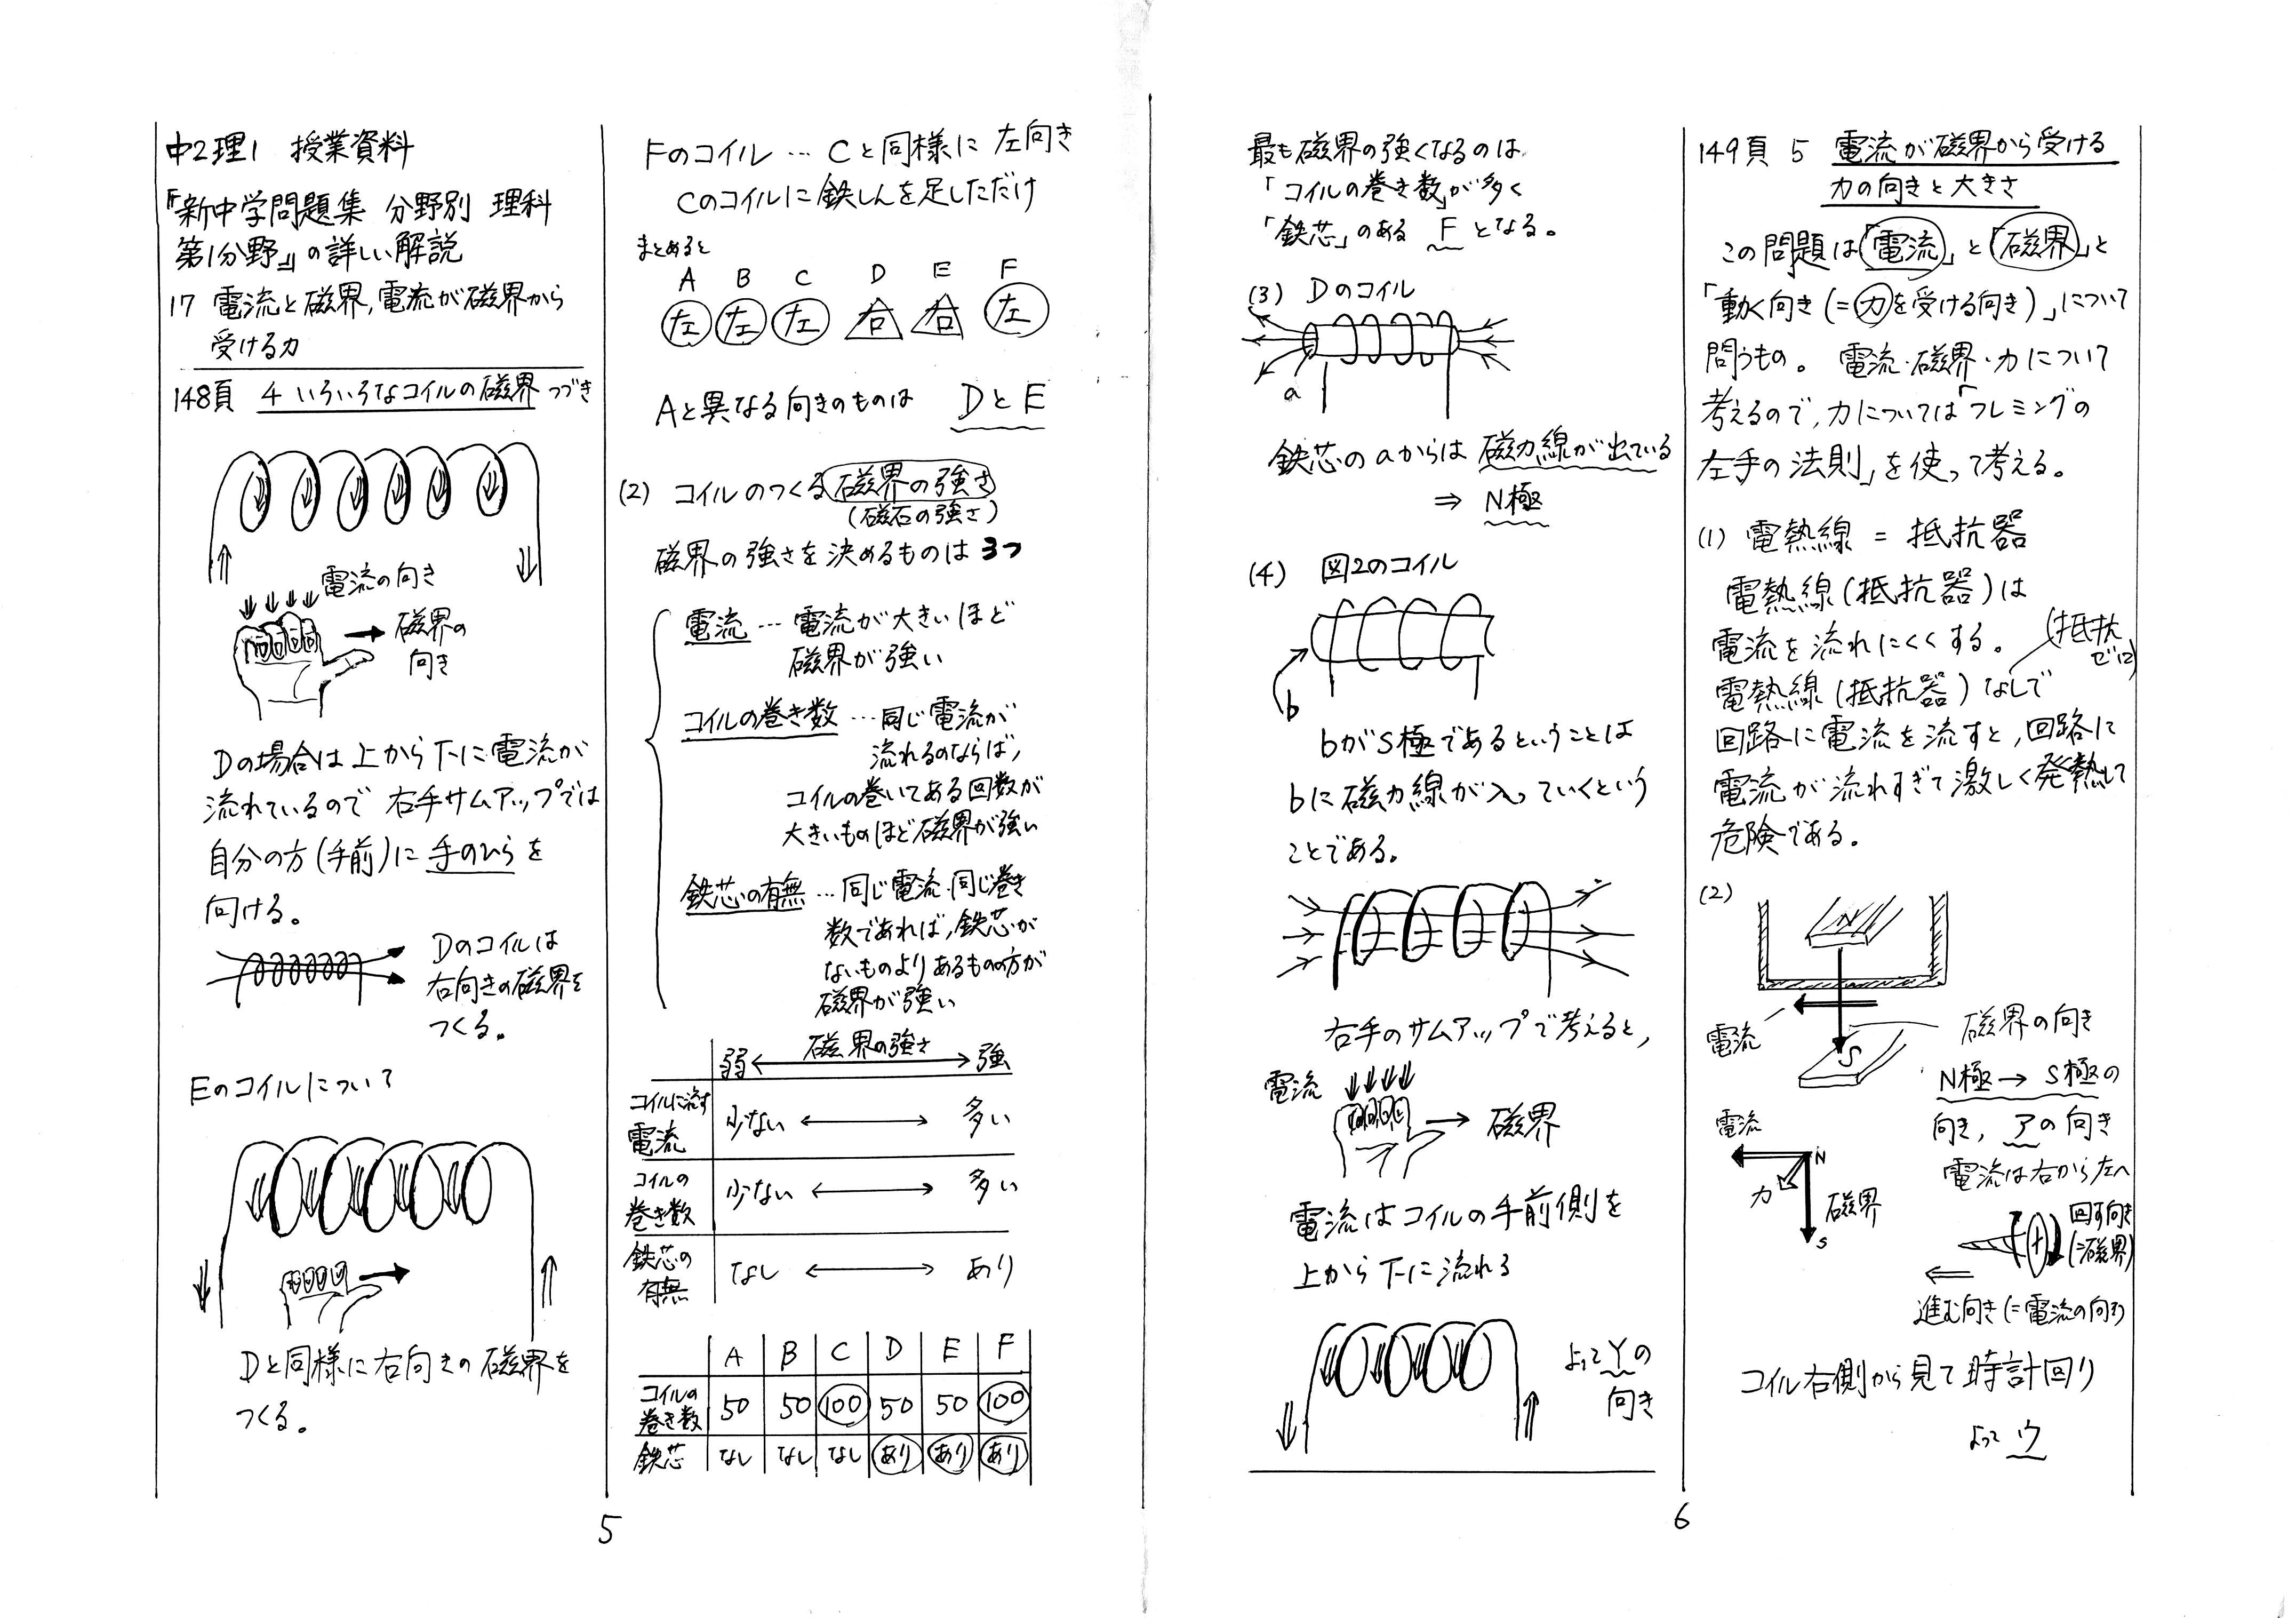 中2理1 授業資料
『新中学問題集 分野別 理科
第1分野』の詳しい解説
17 電流と磁界,電流が磁界から
受ける力
148頁 4 いろいろなコイルの磁界 つづき
電流の向き
磁界の
向き
Dの場合は上から下に電流が
流れているので右手サムアップでは
自分の方(手前)に手のひらを
向ける。
Dのコイルは
右向きの磁界を
つくる。
Eのコイルについて
Dと同様に右向きの磁界を
つくる。
Fのコイル … Cと同様に左向き
Cのコイルに鉄しんを足しただけ
まとめると
A B C D E F
左 左 左 右 右 左
Aと異なる向きのものは DとE
(2) コイルのつくる磁界の強さ
(磁石の強さ)
磁界の強さを決めるものは3つ
電流 … 電流が大きいほど
磁界が強い
コイルの巻き数 … 同じ電流が
流れるのならば,
コイルの巻いてある回数が
大きいものほど磁界が強い
鉄芯の有無 … 同じ電流・同じ巻き
数であれば,鉄芯が
ないものよりあるものの方が
磁界が強い
弱 ←磁界の強さ→ 強
コイルに流す
電流 少ない ←→ 多い
コイルの
巻き数 少ない ←→ 多い
鉄芯の
有無 なし ←→ あり
A B C D E F
コイルの
巻き数 50 50 100 50 50 100
鉄芯 なし なし なし あり あり あり
5
最も磁界の強くなるのは
「コイルの巻き数」が多く
「鉄芯」のある F となる。
(3) Dのコイル
a
鉄芯のaからは磁力線が出ている
⇒ N極
(4) 図2のコイル
b
bがS極であるということは
bに磁力線が入っていくという
ことである。
右手のサムアップで考えると,
電流
→ 磁界
電流はコイルの手前側を
上から下に流れる
よってYの
向き
149頁 5 電流が磁界から受ける
力の向きと大きさ
この問題は「電流」と「磁界」と
「動く向き(=力を受ける向き)」について
問うもの。 電流・磁界・力について
考えるので,力については「フレミングの
左手の法則」を使って考える。
(1) 電熱線 = 抵抗器
電熱線(抵抗器)は
電流を流れにくくする。
(抵抗
ゼロ)
電熱線(抵抗器)なしで
回路に電流を流すと,回路に
電流が流れすぎて激しく発熱して
危険である。
(2)
N
電流
S
磁界の向き
N極→S極の
向き, アの向き
電流は右から左へ
電流
N
力
磁界
S
回す向き
(=磁界)
進む向き(=電流の向き)
コイル右側から見て時計回り
よって ウ
6